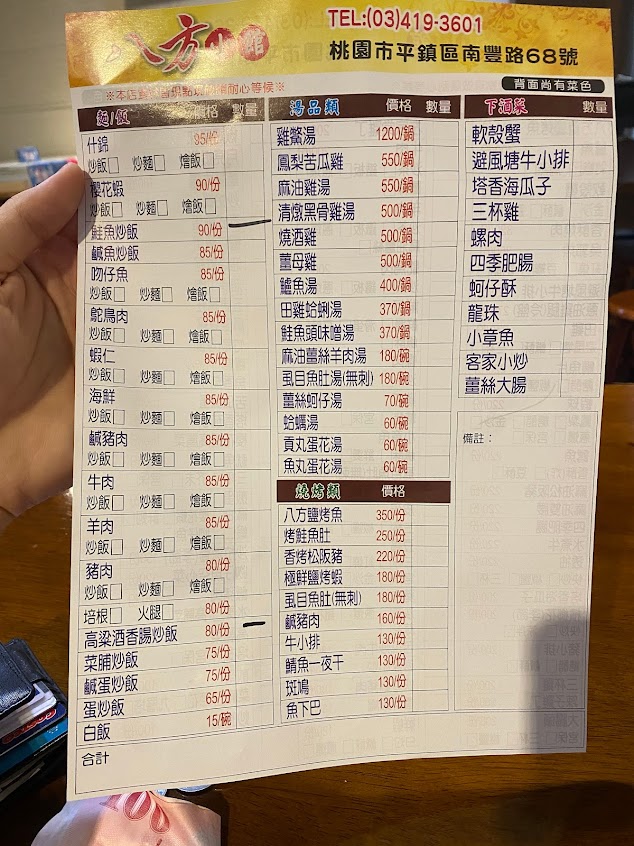 八方小館
TEL:(03)419-3601
桃園市平鎮區南豐路68號
背面尚有菜色
麵/飯 價格 數量
什錦 95/份
炒飯□ 炒麵□ 燴飯□
櫻花蝦 90/份
炒飯□ 炒麵□ 燴飯□
鮭魚炒飯 90/份
鹹魚炒飯 85/份
吻仔魚 85/份
炒飯□ 炒麵□ 燴飯□
鴕鳥肉 85/份
炒飯□ 炒麵□ 燴飯□
蝦仁 85/份
炒飯□ 炒麵□ 燴飯□
海鮮 85/份
炒飯□ 炒麵□ 燴飯□
鹹豬肉 85/份
炒飯□ 炒麵□ 燴飯□
牛肉 85/份
炒飯□ 炒麵□ 燴飯□
羊肉 85/份
炒飯□ 炒麵□ 燴飯□
豬肉 80/份
炒飯□ 炒麵□ 燴飯□
培根□ 火腿□ 80/份
高粱酒香腸炒飯 80/份
菜脯炒飯 75/份
鹹蛋炒飯 75/份
蛋炒飯 65/份
白飯 15/碗
合計
湯品類 價格 數量
雞鱉湯 1200/鍋
鳳梨苦瓜雞 550/鍋
麻油雞湯 550/鍋
清燉黑骨雞湯 500/鍋
燒酒雞 500/鍋
薑母雞 500/鍋
鱸魚湯 400/鍋
田雞蛤蜊湯 370/鍋
鮭魚頭味噌湯 370/鍋
麻油薑絲羊肉湯 180/碗
虱目魚肚湯(無刺) 180/碗
薑絲蚵仔湯 70/碗
蛤蠣湯 60/碗
貢丸蛋花湯 60/碗
魚丸蛋花湯 60/碗
燒烤類 價格
八方鹽烤魚 350/份
烤鮭魚肚 250/份
香烤松阪豬 220/份
極鮮鹽烤蝦 180/份
虱目魚肚(無刺) 180/份
鹹豬肉 160/份
牛小排 130/份
鯖魚一夜干 130/份
斑鳩 130/份
魚下巴 130/份
下酒菜 數量
軟殼蟹
避風塘牛小排
塔香海瓜子
三杯雞
螺肉
四季肥腸
蚵仔酥
龍珠
小章魚
客家小炒
薑絲大腸
備註：